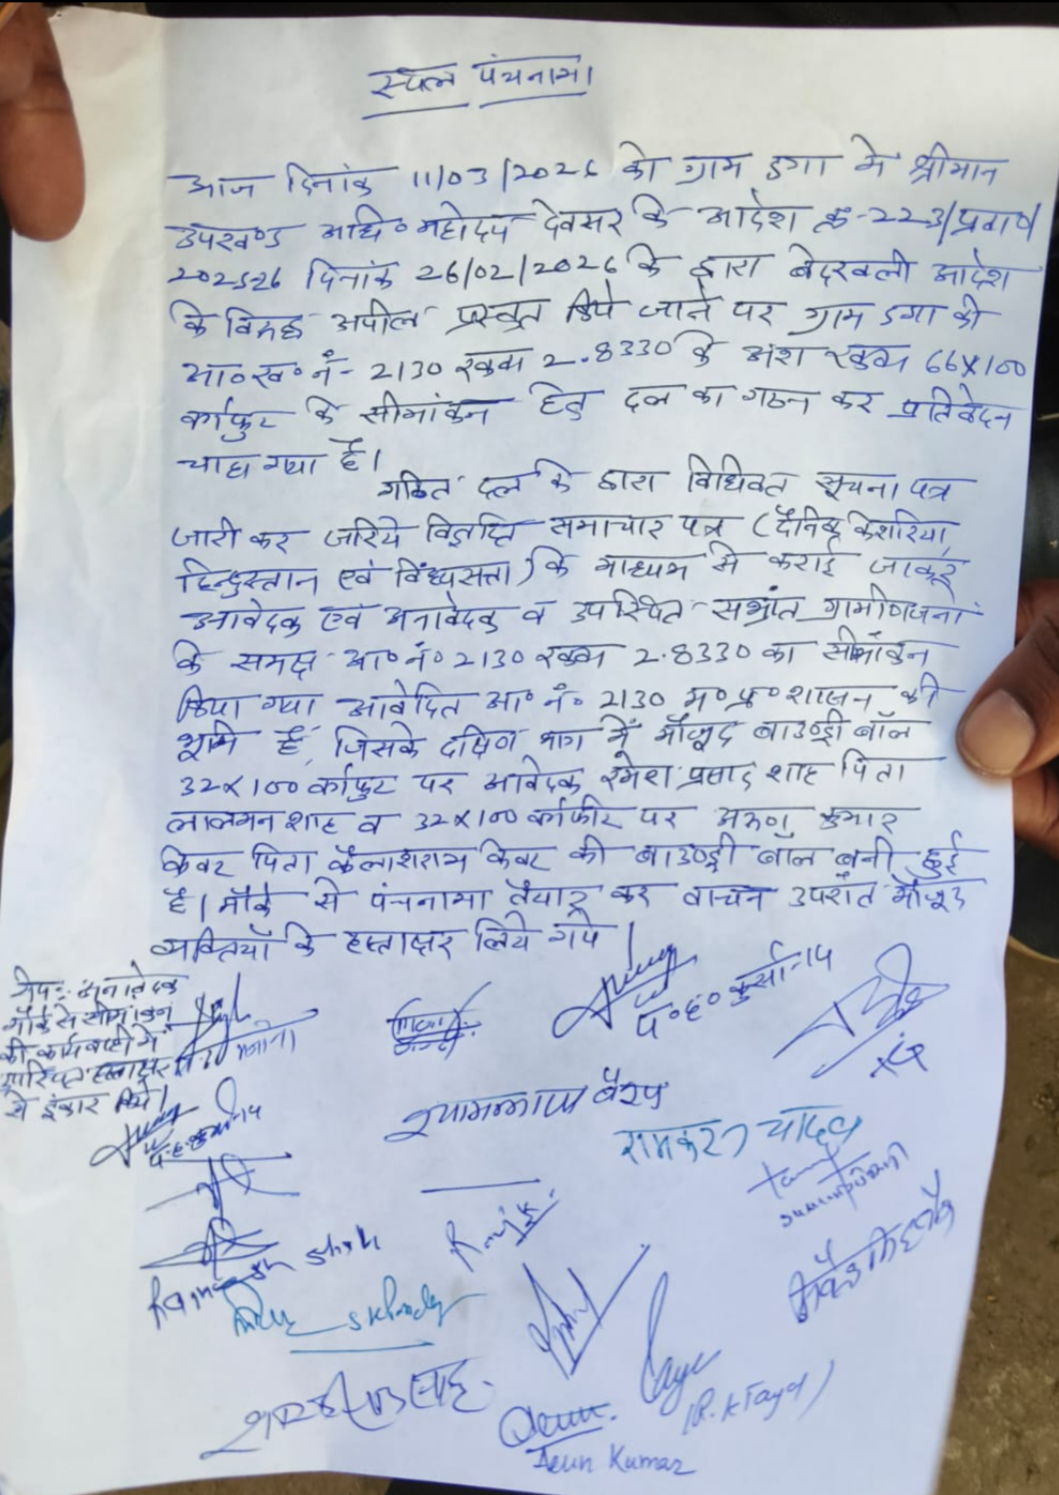 स्थल पंचनामा
आज दिनांक 11/03/2026 को ग्राम डगा मे श्रीमान
उपखण्ड अधि० महोदय देवसर के आदेश क्र-223/प्रवा०/
2025-26 दिनांक 26/02/2026 के द्वारा बेदखली आदेश
के विरुद्ध अपील प्रस्तुत किये जाने पर ग्राम डगा की
आ०ख०नं- 2130 रकवा 2.8330 के अंश रकवा 66X100
वर्गफुट के सीमांकन हेतु दल का गठन कर प्रतिवेदन
चाहा गया है।
गठित दल के द्वारा विधिवत सूचना पत्र
जारी कर जरिये विज्ञप्ति समाचार पत्र (दैनिक केशरिया
हिन्दुस्तान एवं विंध्यसत्ता) के माध्यम से कराई जाकर
आवेदक एवं अनावेदक व उपस्थित सभ्रांत ग्रामीणजनों
के समक्ष आ०नं० 2130 रकवा 2.8330 का सीमांकन
किया गया आवेदित आ० नं० 2130 म०प्र० शासन की
भूमि है, जिसके दक्षिण भाग में मौजूद बाउण्ड्री बॉल
32X100 वर्गफुट पर आवेदक रमेश प्रसाद शाह पिता
लालमन शाह व 32X100 वर्गफीट पर अरुण कुमार
केवट पिता कैलाशराम केवट की बाउण्ड्री बॉल बनी हुई
है। मौके से पंचनामा तैयार कर वाचन उपरांत मौजूद
व्यक्तियों के हस्ताक्षर लिये गये।
नोट:- अनावेदक
मौके से सीमांकन
की कार्यवाही में
उपस्थित हस्ताक्षर
से इंकार किये।
प०ह० कुर्सा-14
श्यामलाल बैश्य
रामकरन यादव
Ramesh Shah
(R. K Tayal)
Arun Kumar